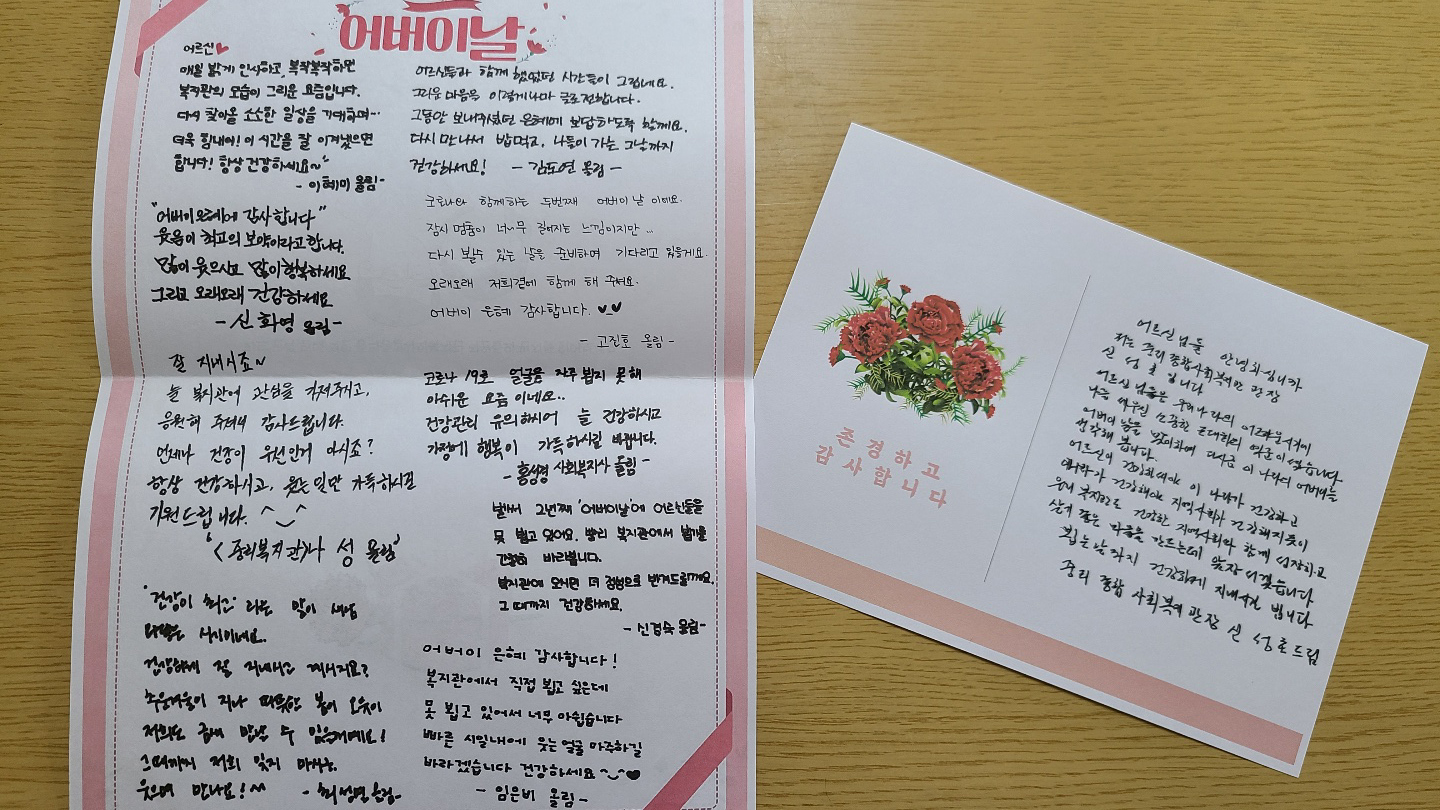 어버이날
어르신♥
매일 밝게 인사하고, 복작복작하던
복지관의 모습이 그리운 요즘입니다.
다시 찾아올 소소한 일상을 기대하며...
더욱 힘내어! 이 시간을 잘 이겨냈으면
합니다! 항상 건강하세요~
- 이혜미 올림 -
"어버이 은혜에 감사합니다"
웃음이 최고의 보약이라고 합니다.
많이 웃으시고 많이 행복하세요
그리고 오래오래 건강하세요
- 신화영 올림 -
잘 지내시죠~
늘 복지관에 관심을 가져주시고,
응원해 주셔서 감사드립니다.
언제나 건강이 우선인거 아시죠?
항상 건강하시고, 웃는 일만 가득하시길
기원드립니다. ^‿^
<중리복지관> 나 성 올림
"건강이 최고" 라는 말이 새삼
시기이네요.
건강하게 잘 지내시고 계시지요?
추운겨울이 지나 따뜻한 봄이 오듯이
저희도 곧 만날 수 있을거예요!
그때까지 저희 잊지 마시고
웃으며 만나요! ^^
어르신들과 함께 했었던 시간들이 그립네요.
그리운 마음을 이렇게나마 글로 전합니다.
그동안 보내주셨던 은혜에 보답하도록 할게요.
다시 만나서 밥먹고, 나들이 가는 그날까지
건강하세요! - 김도연 올림 -
코로나와 함께하는 두번째 어버이 날 이에요.
잠시 멈춤이 너~무 길어지는 느낌이지만 ...
다시 볼수 있는 날을 준비하며 기다리고 있을게요.
오래오래 저희곁에 함께 해 주세요.
어버이 은혜 감사합니다. ♥♥
- 고진호 올림 -
코로나 19로 얼굴을 자주 뵙지 못해
아쉬운 요즘 이네요..
건강관리 유의하시어 늘 건강하시고
가정에 행복이 가득하시길 바랍니다.
- 홍성경 사회복지사 올림 -
벌써 2년째 '어버이날'에 어르신들을
못 뵙고 있어요. 빨리 복지관에서 뵙기를
간절히 바라봅니다.
복지관에 오시면 더 정성으로 반겨드릴게요.
그 때까지 건강하세요.
- 신경숙 올림 -
어버이 은혜 감사합니다!
복지관에서 직접 뵙고 싶은데
못 뵙고 있어서 너무 아쉽습니다
빠른 시일내에 웃는 얼굴 마주하길
바라겠습니다 건강하세요 ^‿^♥
- 임은비 올림 -
존경하고
감사합니다
어르신님들 안녕하십니까
저는 중리 종합사회복지관 관장
신 성 호 입니다
어르신님들은 우리나라의 어려운시기에
나라를 세우신 소중한 근대화의 역군이셨습니다
어버이 날을 맞이하여 다시금 이 나라의 어버이를
생각해 봅니다.
어르신이 건강하셔야 이 나라가 건강하고
나라가 건강해야 지역사회가 건강해지듯이
우리 복지관도 건강한 지역사회와 함께 성장하고
살기 좋은 마을을 만드는데 앞장 서겠습니다
뵙는 날까지 건강하게 지내시길 빕니다
중리 종합 사회복지관장 신 성 호 드림